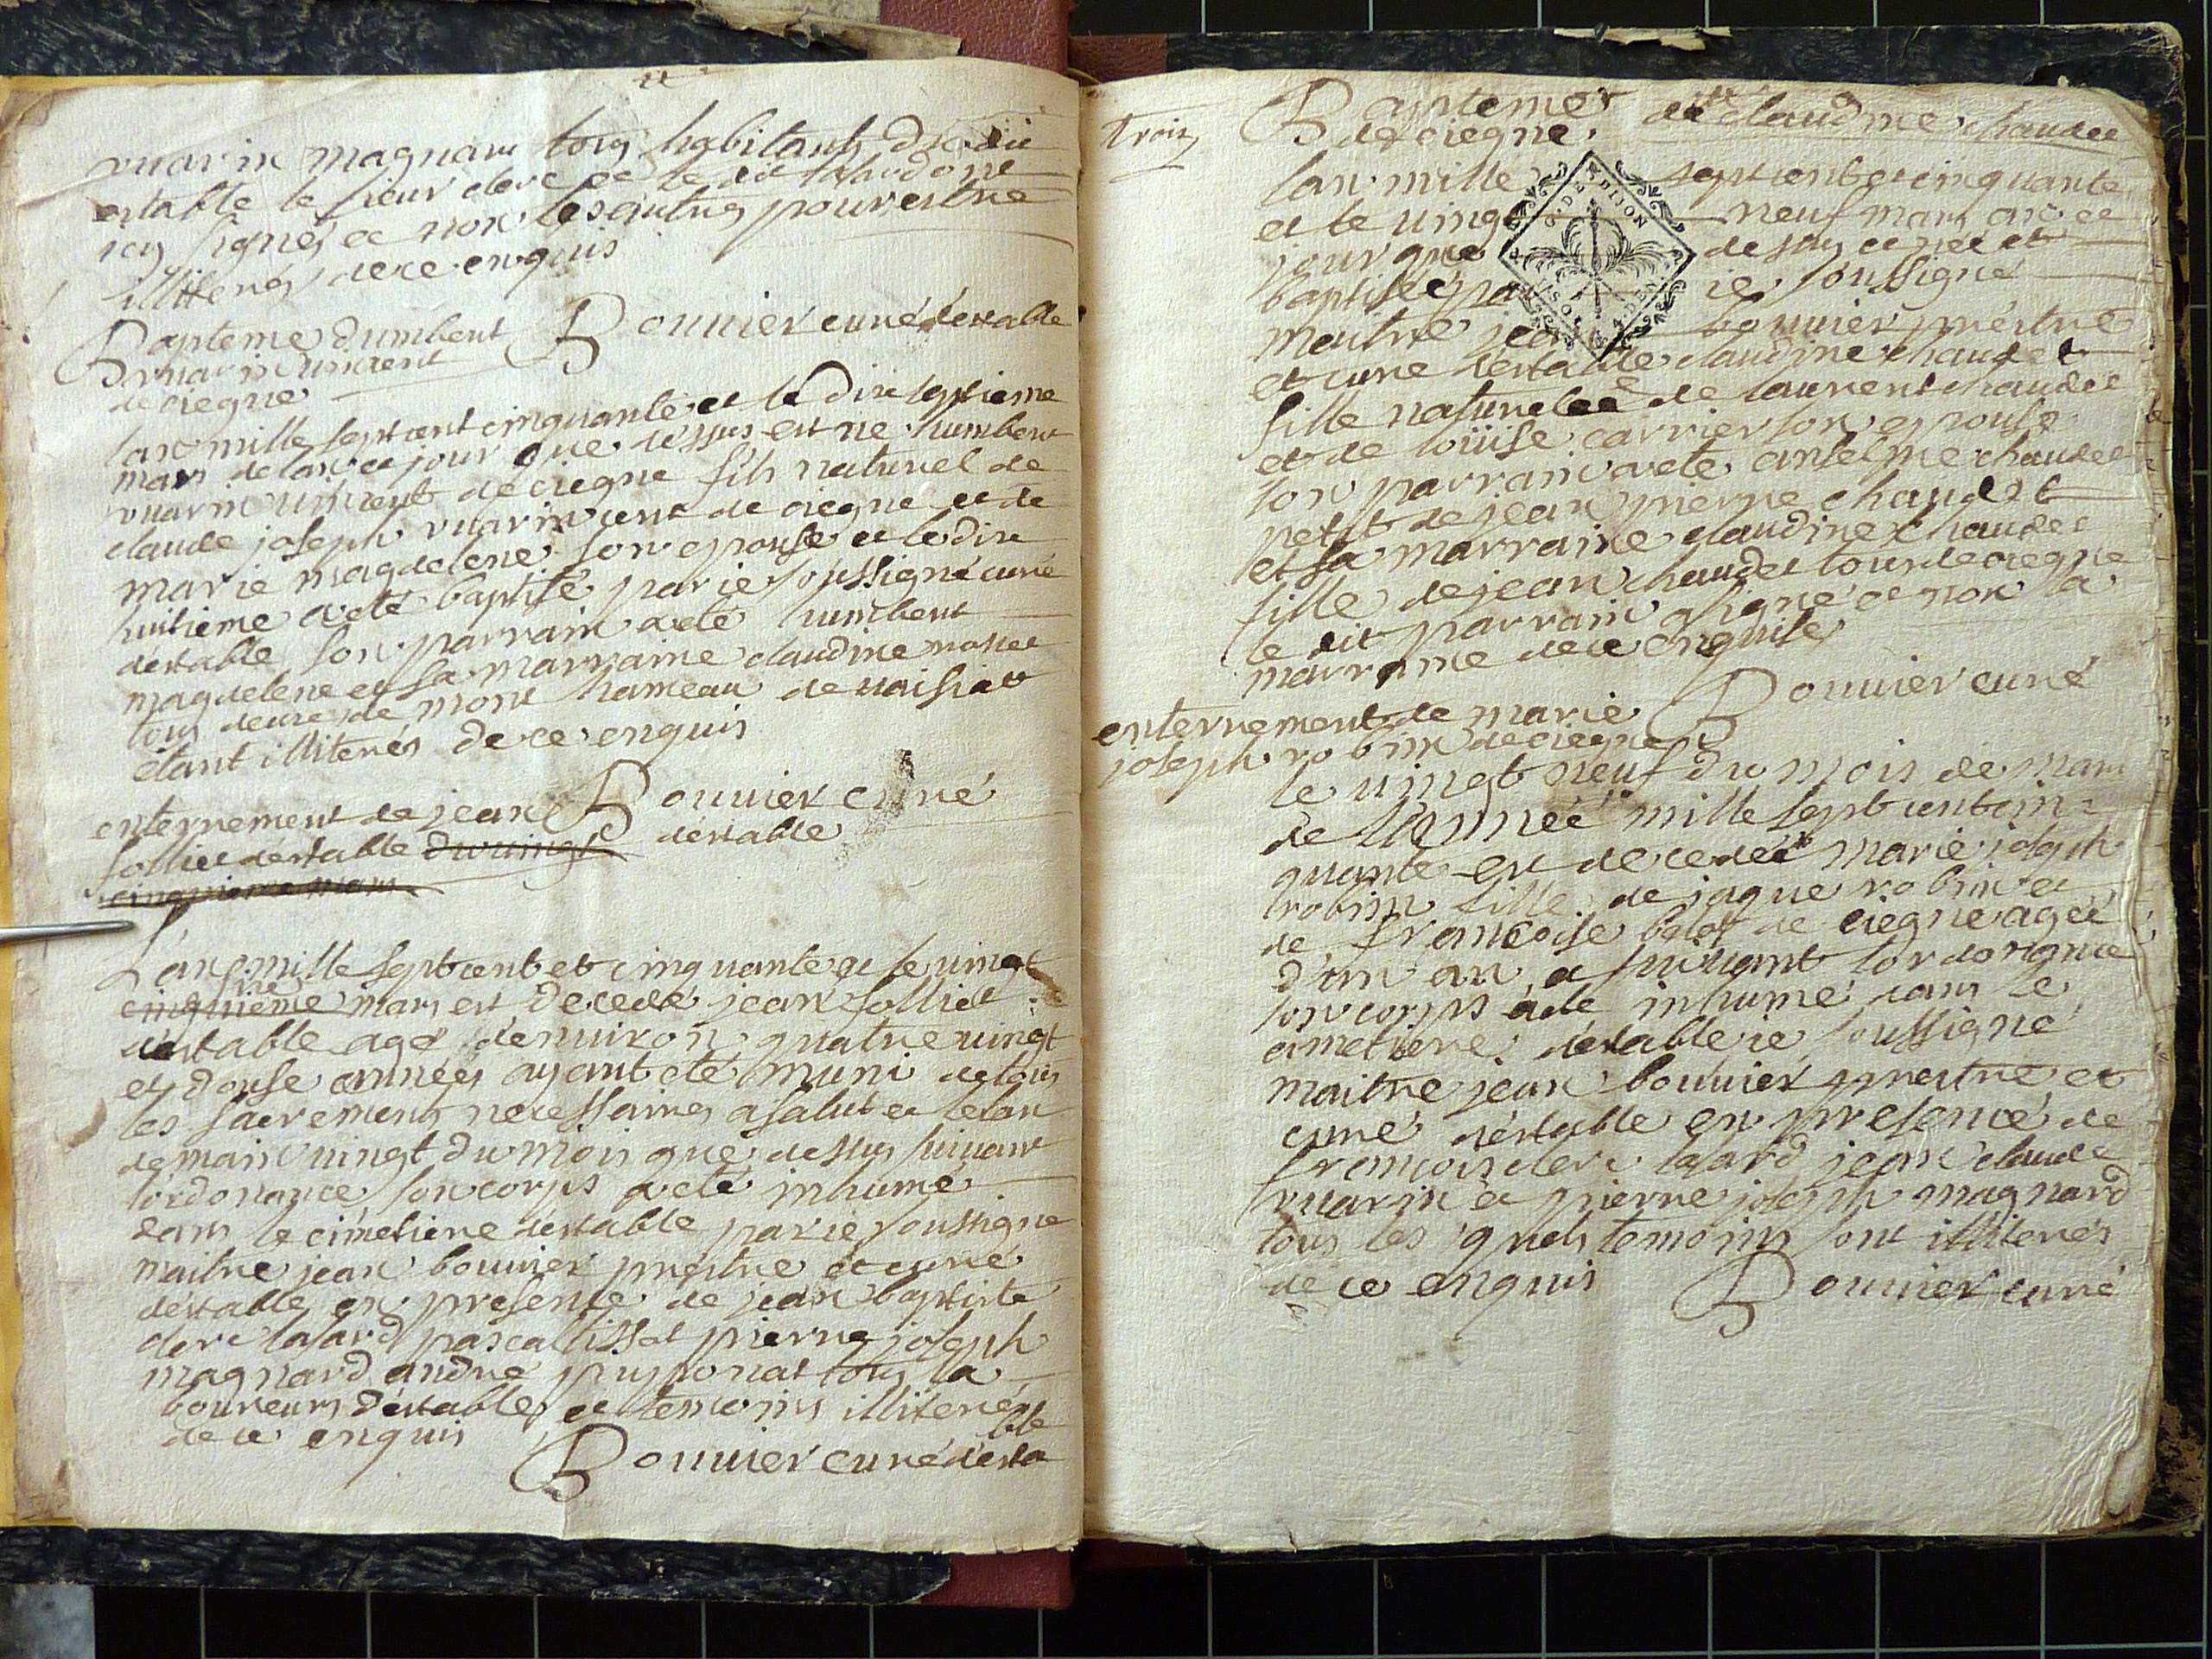 vuarin magnam tous habitants du dit
estable le sieur clerc et le dit
icy signés et non les autres pour estre
illiterés de ce enquis
Bouvier curé d'estable
Bapteme d'umbert
vuarin vincent
de ciegne
lan mille sept cent cinquante et le dix septieme
mars de lan et jour que dessus est né humbert
vuarin vincent de ciegne fils naturel de
claude joseph vuarin cent de ciegne et de
marie magdelene son epouse et le dix
huitieme a eté baptisé par je soussigné curé
d'estable son parrain a eté humbert
magdelene et sa marraine claudine
tous deux de mont hameau de
étant illiterés de ce enquis
Bouvier curé
d'estable
enterrement de jean
sollier d'estable du vingt
cinquieme mars
L'an mille sept cent et cinquante et le vingt
cinquième mars est decedé jean sollier
d'estable agé d'environ quatre vingt
et douse années ayant eté muni de tous
les sacrements necessaires a salut et le lan
demain vingt du mois que dessus suivant
l'ordonance son corps a eté inhumé
dans le cimetiere d'estable par je soussigné
maitre jean bouvier prestre et curé
d'estable en presence de jean baptiste
clerc pascal tissot pierre joseph
magnard andré tous la
boureurs d'estable et temoins illiterés
de ce enquis
ble
Bouvier curé d'esta
trois
Bapteme de claudine chaudet
de ciegne
lan mille sept cent et cinquante
et le vingt neuf mars an et
jour que dessus et née et
baptisée par je soussigné
G. DE DIJON
maitre jean bouvier prestre
et curé d'estable claudine chaudet
fille naturelle de laurent chaudet
et de louise carrier son epouse
son parrain a eté anselme chaudet
petit de jean pierre chaudet
et sa marraine claudine chaudet
fille de jean chaudet tous de ciegne
le dit parrain a signé et non la
marraine de ce enquise
Bouvier curé
enterrement de marie
joseph robin de ciegne
le vingt neuf du mois de mars
de l'année mille sept cent cin-
quante est decedée marie joseph
robin fille de jaque robin et
de francoise de ciegne agée
d'un an, a suivant l'ordonance
son corps a eté inhumé dans le
cimetiere d'estable je soussigné
maitre jean bouvier prestre et
curé d'estable en presence de
francois clerc jean claude
vuarin et pierre joseph magnard
tous les quels temoins sont illiterés
de ce enquis
Bouvier curé